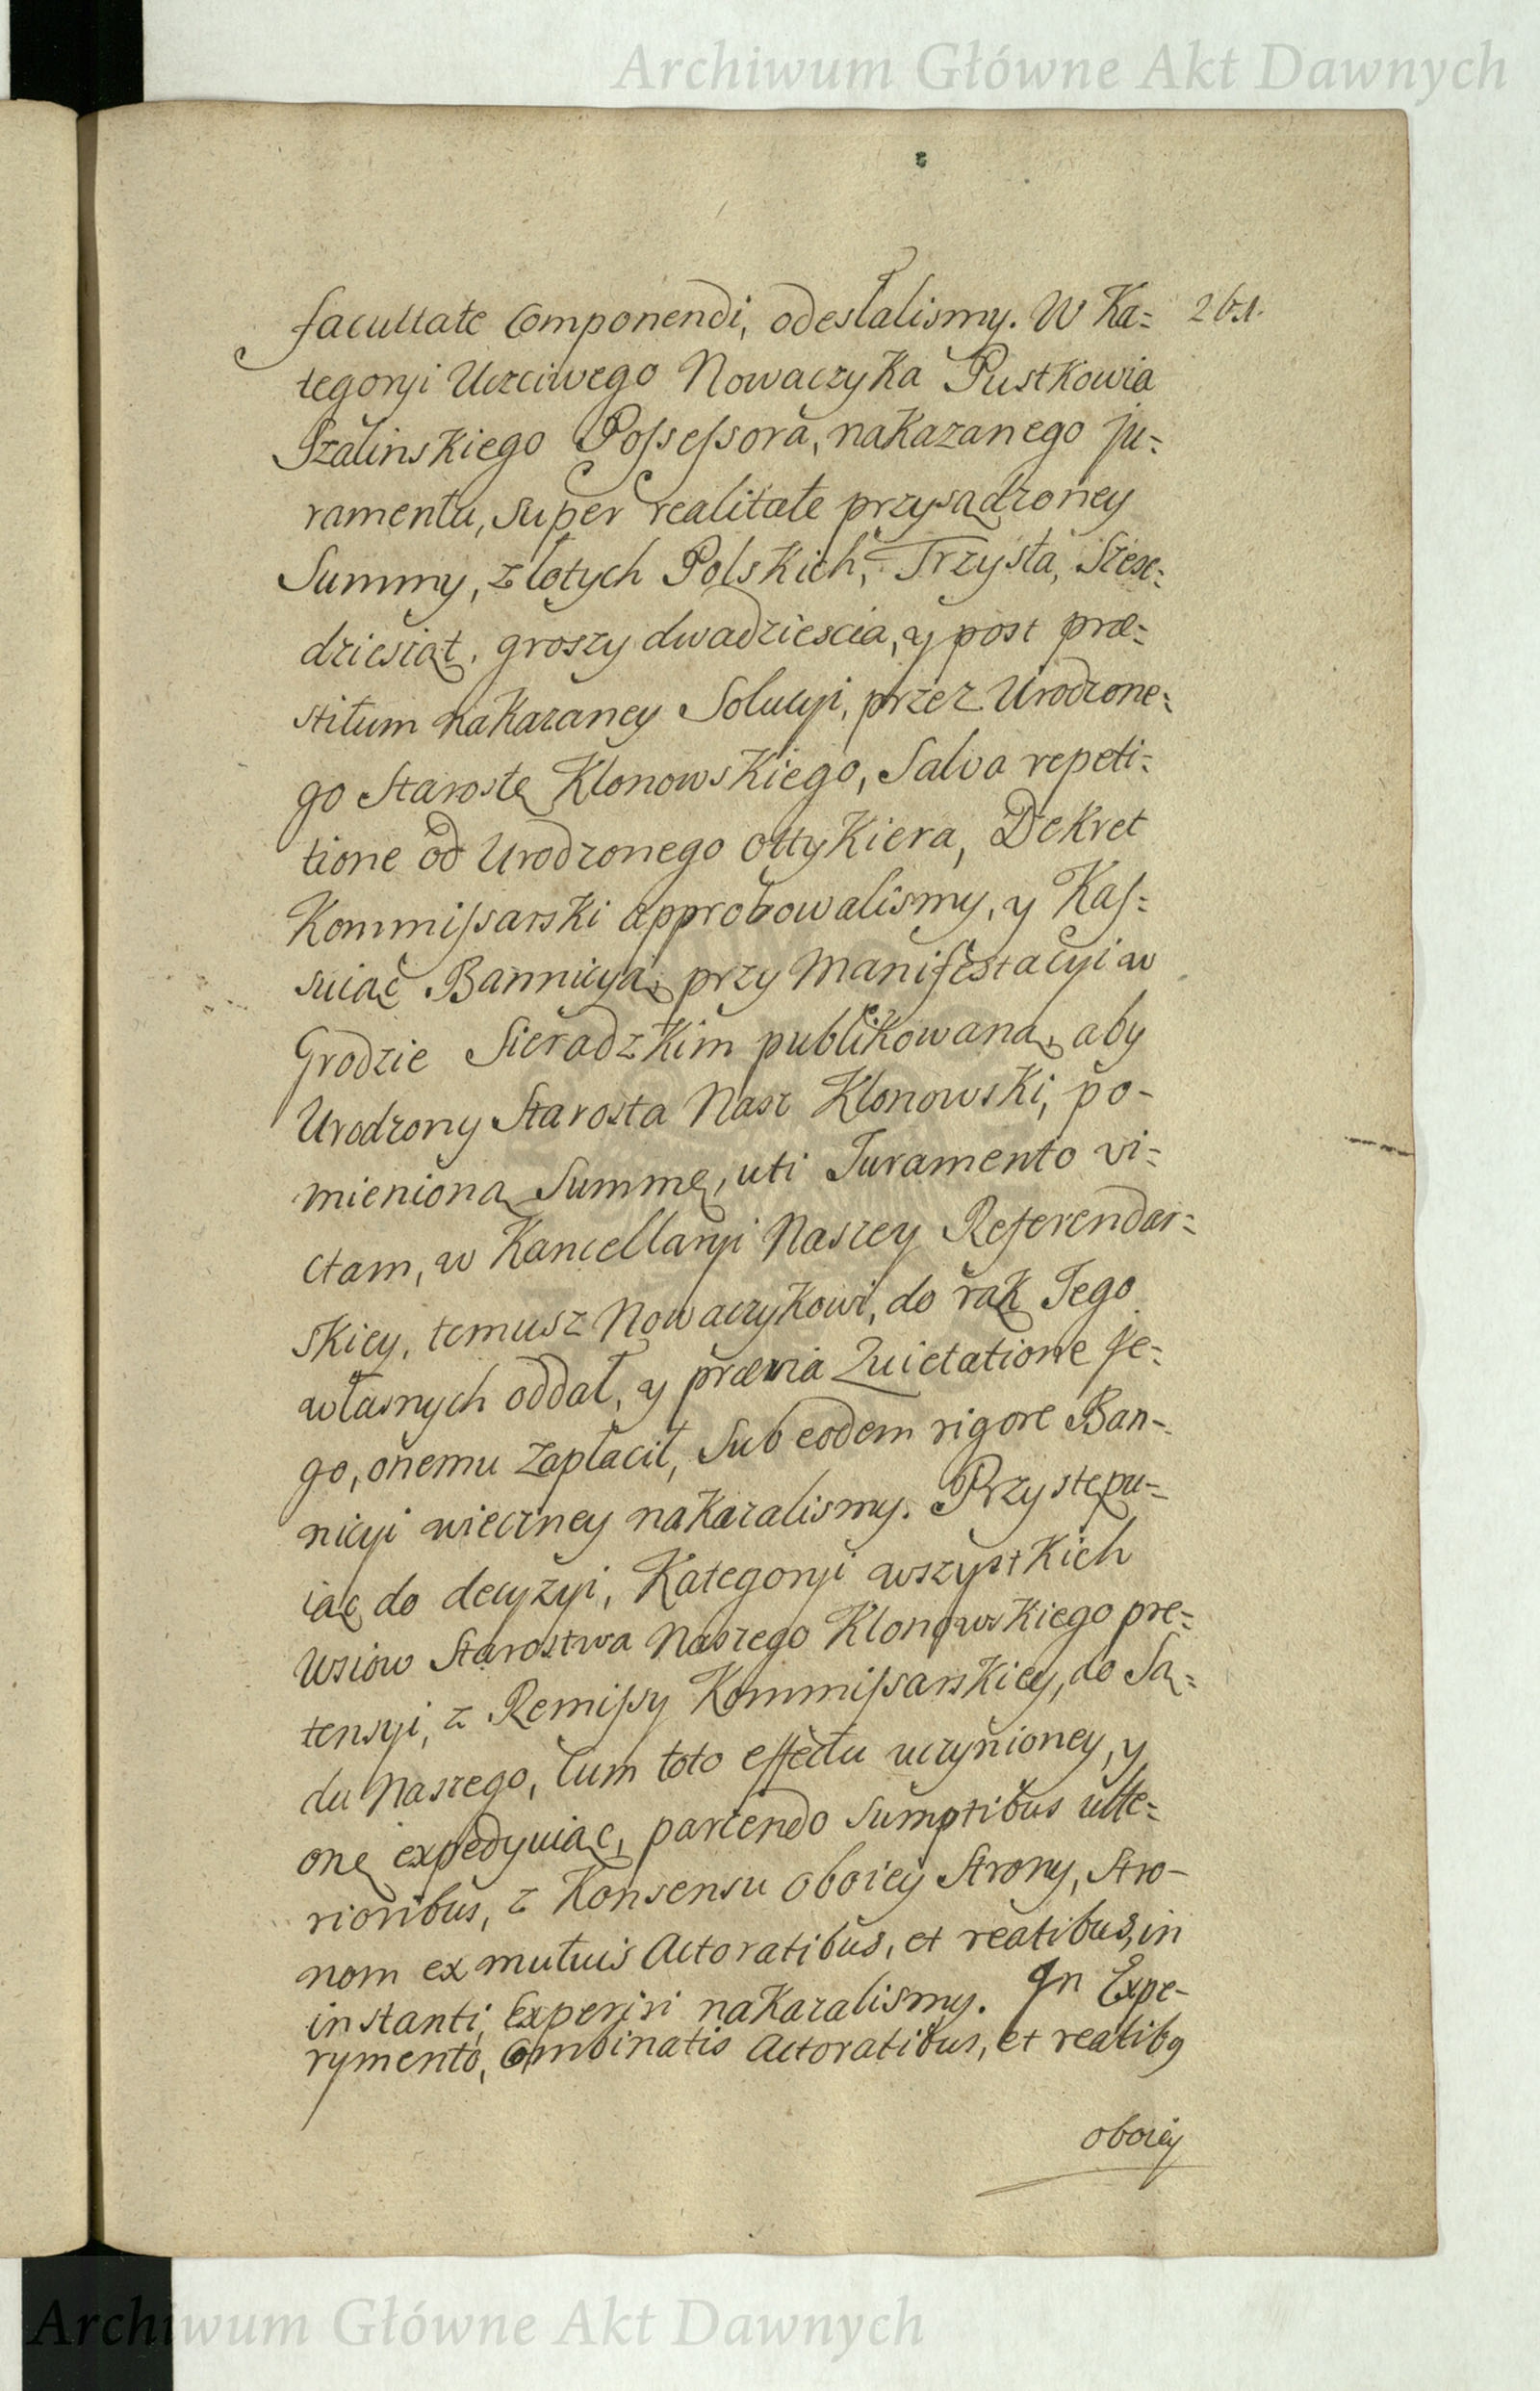 Archiwum Główne Akt Dawnych
facultate Componendi, odesłalismy. W Ka=
tegoryi Uczciwego Nowaczyka Pustkowia
Szalinskiego Poſseſsora, nakazanego Ju=
ramentu, super realitate przysądzoney
Summy, złotych Polskich, Trzysta, Szesc=
dziesiąt, groszy dwadziescia, y post præ=
stitum nakazaney Solucyi, przez Urodzone=
go Starostę Klonowskiego, Salva repeti=
tione od Urodzonego Ottykiera, Dekret
Kommiſsarski approbowalismy, y Kaſ=
suiąc Bannicyą, przy Manifestacyi w
Grodzie Sieradzkim publikowaną, aby
Urodzony Starosta Nasz Klonowski, po-
mienioną Summę, uti Juramento vi=
ctam, w Kancellaryi Naszey Referendar=
skiey, temusz Nowaczykowi, do rąk Jego
własnych oddał, y prævia Quietatione Je=
go, onemu zapłacił, Sub eodem rigore Ban-
nicyi wieczney nakazalismy. Przystępu=
iąc do decyzyi, Kategoryi wszystkich
Wsiow Starostwa Naszego Klonowskiego pre=
tensyi, z Remiſsy Kommiſsarskiey, do Są=
du Naszego, Cum toto effectu uczynioney, y
onę expedyuiąc, parcendo Sumptibus ulte=
rioribus, z Konsensu oboiey Strony, Stro-
nom ex mutuis Actoratibus, et reatibus, in
instanti, Experiri nakazalismy. In Expe-
rymento, Combinatis Actoratibus, et reatibꝰ
oboiey
Archiwum Główne Akt Dawnych